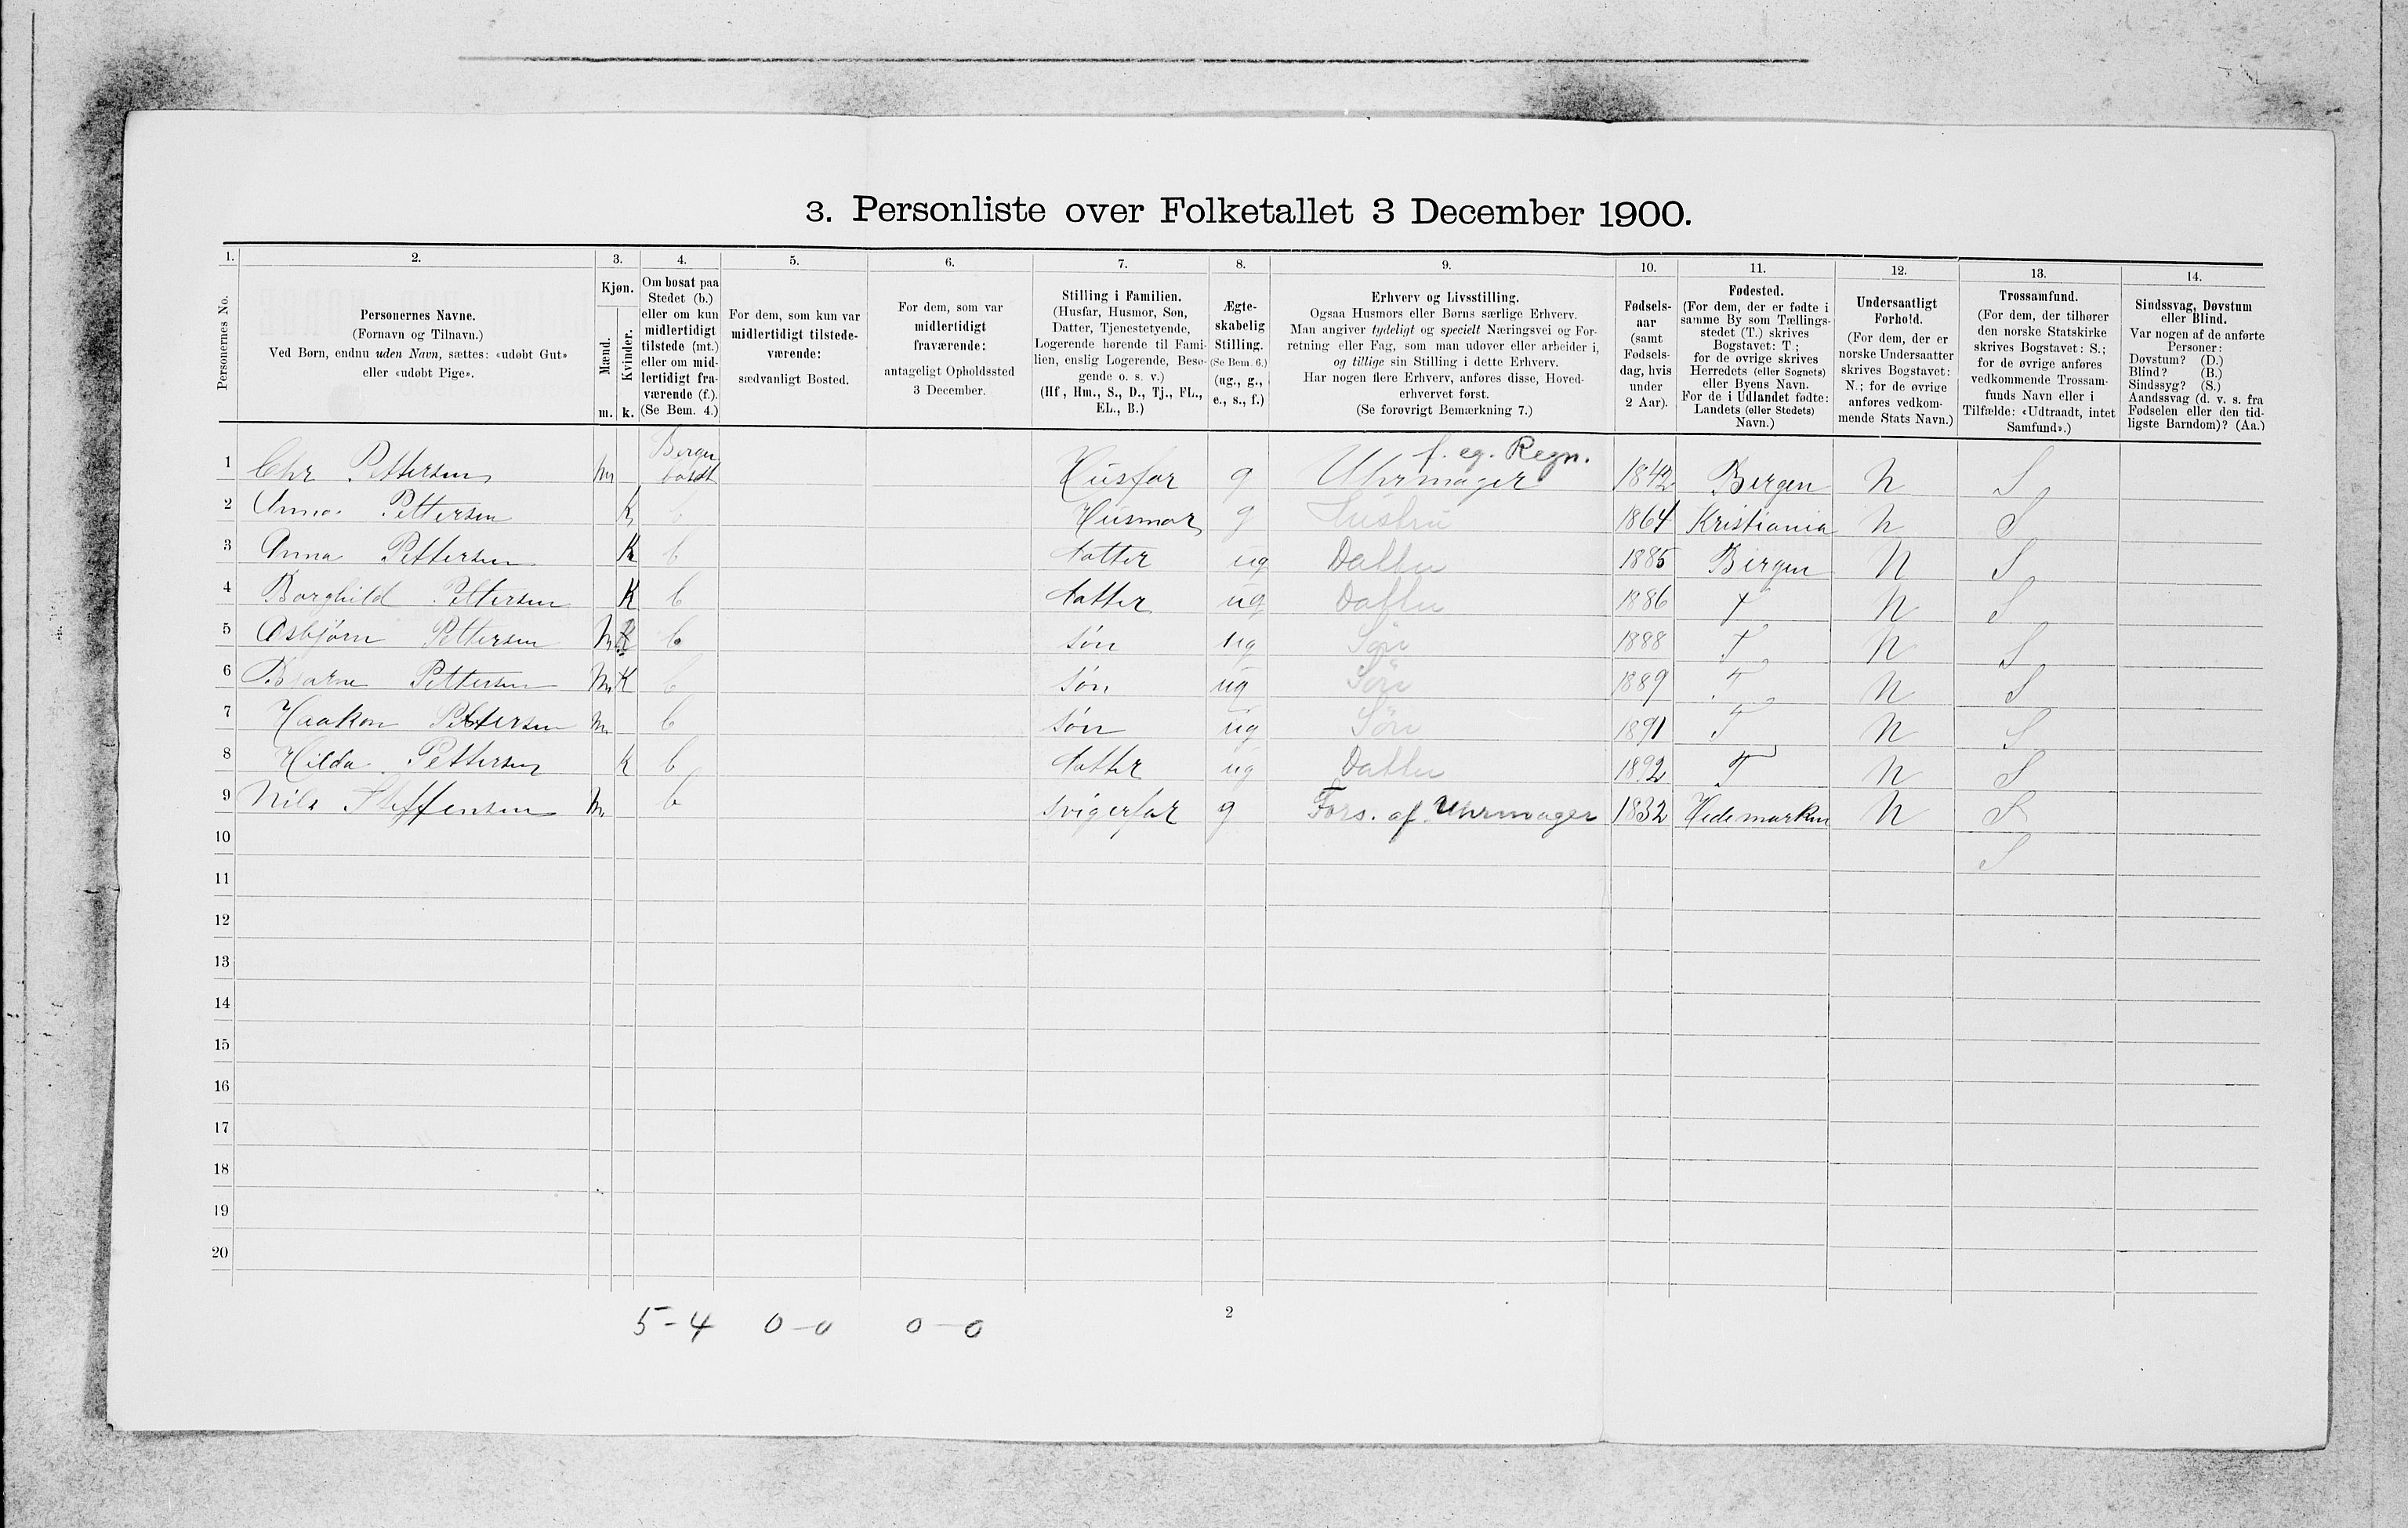 3. Personliste over Folketallet 3 December 1900.
1. 2. 3. 4. 5. 6. 7. 8. 9. 10. 11. 12. 13. 14.
Personernes No.
Personernes Navne.
(Fornavn og Tilnavn.)
Ved Børn, endnu uden Navn, sættes: «udøbt Gut»
eller «udøbt Pige».
Kjøn.
Mænd.
Kvinder.
m. k.
Om bosat paa
Stedet (b.)
eller om kun
midlertidigt
tilstede (mt.)
eller om mid-
lertidigt fra-
værende (f.).
(Se Bem. 4.)
For dem, som kun var
midlertidigt tilstede-
værende:
sædvanligt Bosted.
For dem, som var
midlertidigt
fraværende:
antageligt Opholdssted
3 December.
Stilling i Familien.
(Husfar, Husmor, Søn,
Datter, Tjenestetyende,
Logerende hørende til Fami-
lien, enslig Logerende, Besø-
gende o. s. v.)
(Hf, Hm., S., D., Tj., FL.,
EL., B.)
Ægte-
skabelig
Stilling.
(Se Bem. 6.)
(ug., g.,
e., s., f.)
Erhverv og Livsstilling.
Ogsaa Husmors eller Børns særlige Erhverv.
Man angiver tydeligt og specielt Næringsvei og For-
retning eller Fag, som man udøver eller arbeider i,
og tillige sin Stilling i dette Erhverv.
Har nogen flere Erhverv, anføres disse, Hoved-
erhvervet først.
(Se forøvrigt Bemærkning 7.)
Fødsels-
aar
(samt
Fødsels-
dag, hvis
under
2 Aar).
Fødested.
(For dem, der er fødte i
samme By som Tællings-
stedet (T.) skrives
Bogstavet: T;
for de øvrige skrives
Herredets (eller Sognets)
eller Byens Navn.
For de i Udlandet fødte:
Landets (eller Stedets)
Navn.)
Undersaatligt
Forhold.
(For dem, der er
norske Undersaatter
skrives Bogstavet:
N.; for de øvrige
anføres vedkom-
mende Stats Navn.)
Trossamfund.
(For dem, der tilhører
den norske Statskirke
skrives Bogstavet: S.;
for de øvrige anføres
vedkommende Trossam-
funds Navn eller i
Tilfælde: «Udtraadt, intet
Samfund».)
Sindssvag, Døvstum
eller Blind.
Var nogen af de anførte
Personer:
Døvstum? (D.)
Blind? (B.)
Sindssyg? (S.)
Aandssvag (d. v. s. fra
Fødselen eller den tid-
ligste Barndom)? (Aa.)
1 Chr Pettersen m Bergen bosat Husfar g Uhrmager f. eg. Regn. 1842 Bergen N S
2 Anna Pettersen K b Husmor g Hustru 1864 Kristiania N S
3 Anna Pettersen K b datter ug Datter 1885 Bergen N S
4 Borghild Pettersen K b datter ug Datter 1886 T N S
5 Asbjørn Pettersen m K b søn ug Søn 1888 T N S
6 Bjarne Pettersen m K b søn ug Søn 1889 T N S
7 Haakon Pettersen m b søn ug Søn 1891 T N S
8 Hilda Pettersen K b datter ug Datter 1892 T N S
9 Nils Steffensen m b svigerfar g Fors. af Uhrmager 1832 Hedemarken N S
10 S
11
12
13
14
15
16
17
18
19
20
5-4 0-0 0-0
2